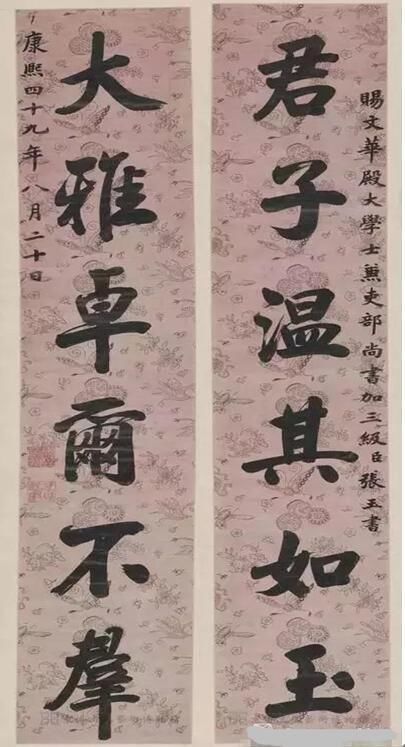 賜文華殿大學士兼吏部尚書加三級臣張玉書
君子温其如玉
大雅卓爾不羣
康熙四十九年八月二十日